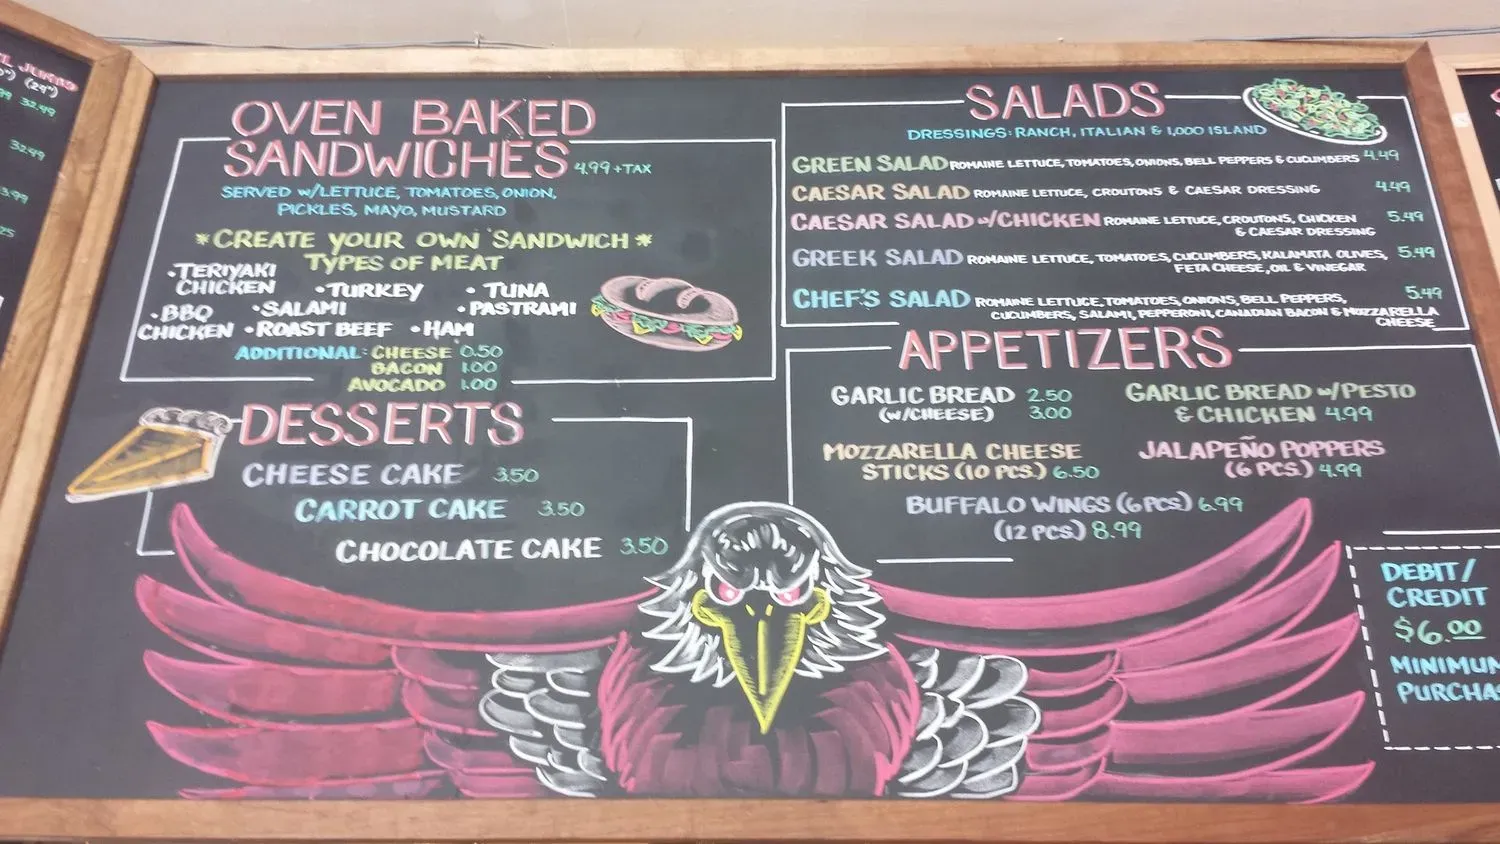 EL JUMBO
(24")
32.49
32.49
OVEN BAKED
SANDWICHES 4.99 + TAX
SERVED W/LETTUCE, TOMATOES, ONION,
PICKLES, MAYO, MUSTARD
*CREATE YOUR OWN SANDWICH*
TYPES OF MEAT
•TERIYAKI
CHICKEN
•TURKEY
•TUNA
•BBQ
CHICKEN
•SALAMI
•PASTRAMI
•ROAST BEEF •HAM
ADDITIONAL: CHEESE 0.50
BACON 1.00
AVOCADO 1.00
DESSERTS
CHEESE CAKE 3.50
CARROT CAKE 3.50
CHOCOLATE CAKE 3.50
SALADS
DRESSINGS: RANCH, ITALIAN & 1,000 ISLAND
GREEN SALAD ROMAINE LETTUCE, TOMATOES, ONIONS, BELL PEPPERS & CUCUMBERS 4.49
CAESAR SALAD ROMAINE LETTUCE, CROUTONS & CAESAR DRESSING 4.49
CAESAR SALAD w/CHICKEN ROMAINE LETTUCE, CROUTONS, CHICKEN 5.49
& CAESAR DRESSING
GREEK SALAD ROMAINE LETTUCE, TOMATOES, CUCUMBERS, KALAMATA OLIVES, 5.49
FETA CHEESE, OIL & VINEGAR
CHEF'S SALAD ROMAINE LETTUCE, TOMATOES, ONIONS, BELL PEPPERS, 5.49
CUCUMBERS, SALAMI, PEPPERONI, CANADIAN BACON & MOZZARELLA
CHEESE
APPETIZERS
GARLIC BREAD 2.50
(w/CHEESE) 3.00
GARLIC BREAD w/PESTO
& CHICKEN 4.99
MOZZARELLA CHEESE
STICKS (10 PCS.) 6.50
JALAPEÑO POPPERS
(6 PCS.) 4.99
BUFFALO WINGS (6 PCS) 6.99
(12 PCS.) 8.99
DEBIT/
CREDIT
$6.00
MINIMUM
PURCHAS